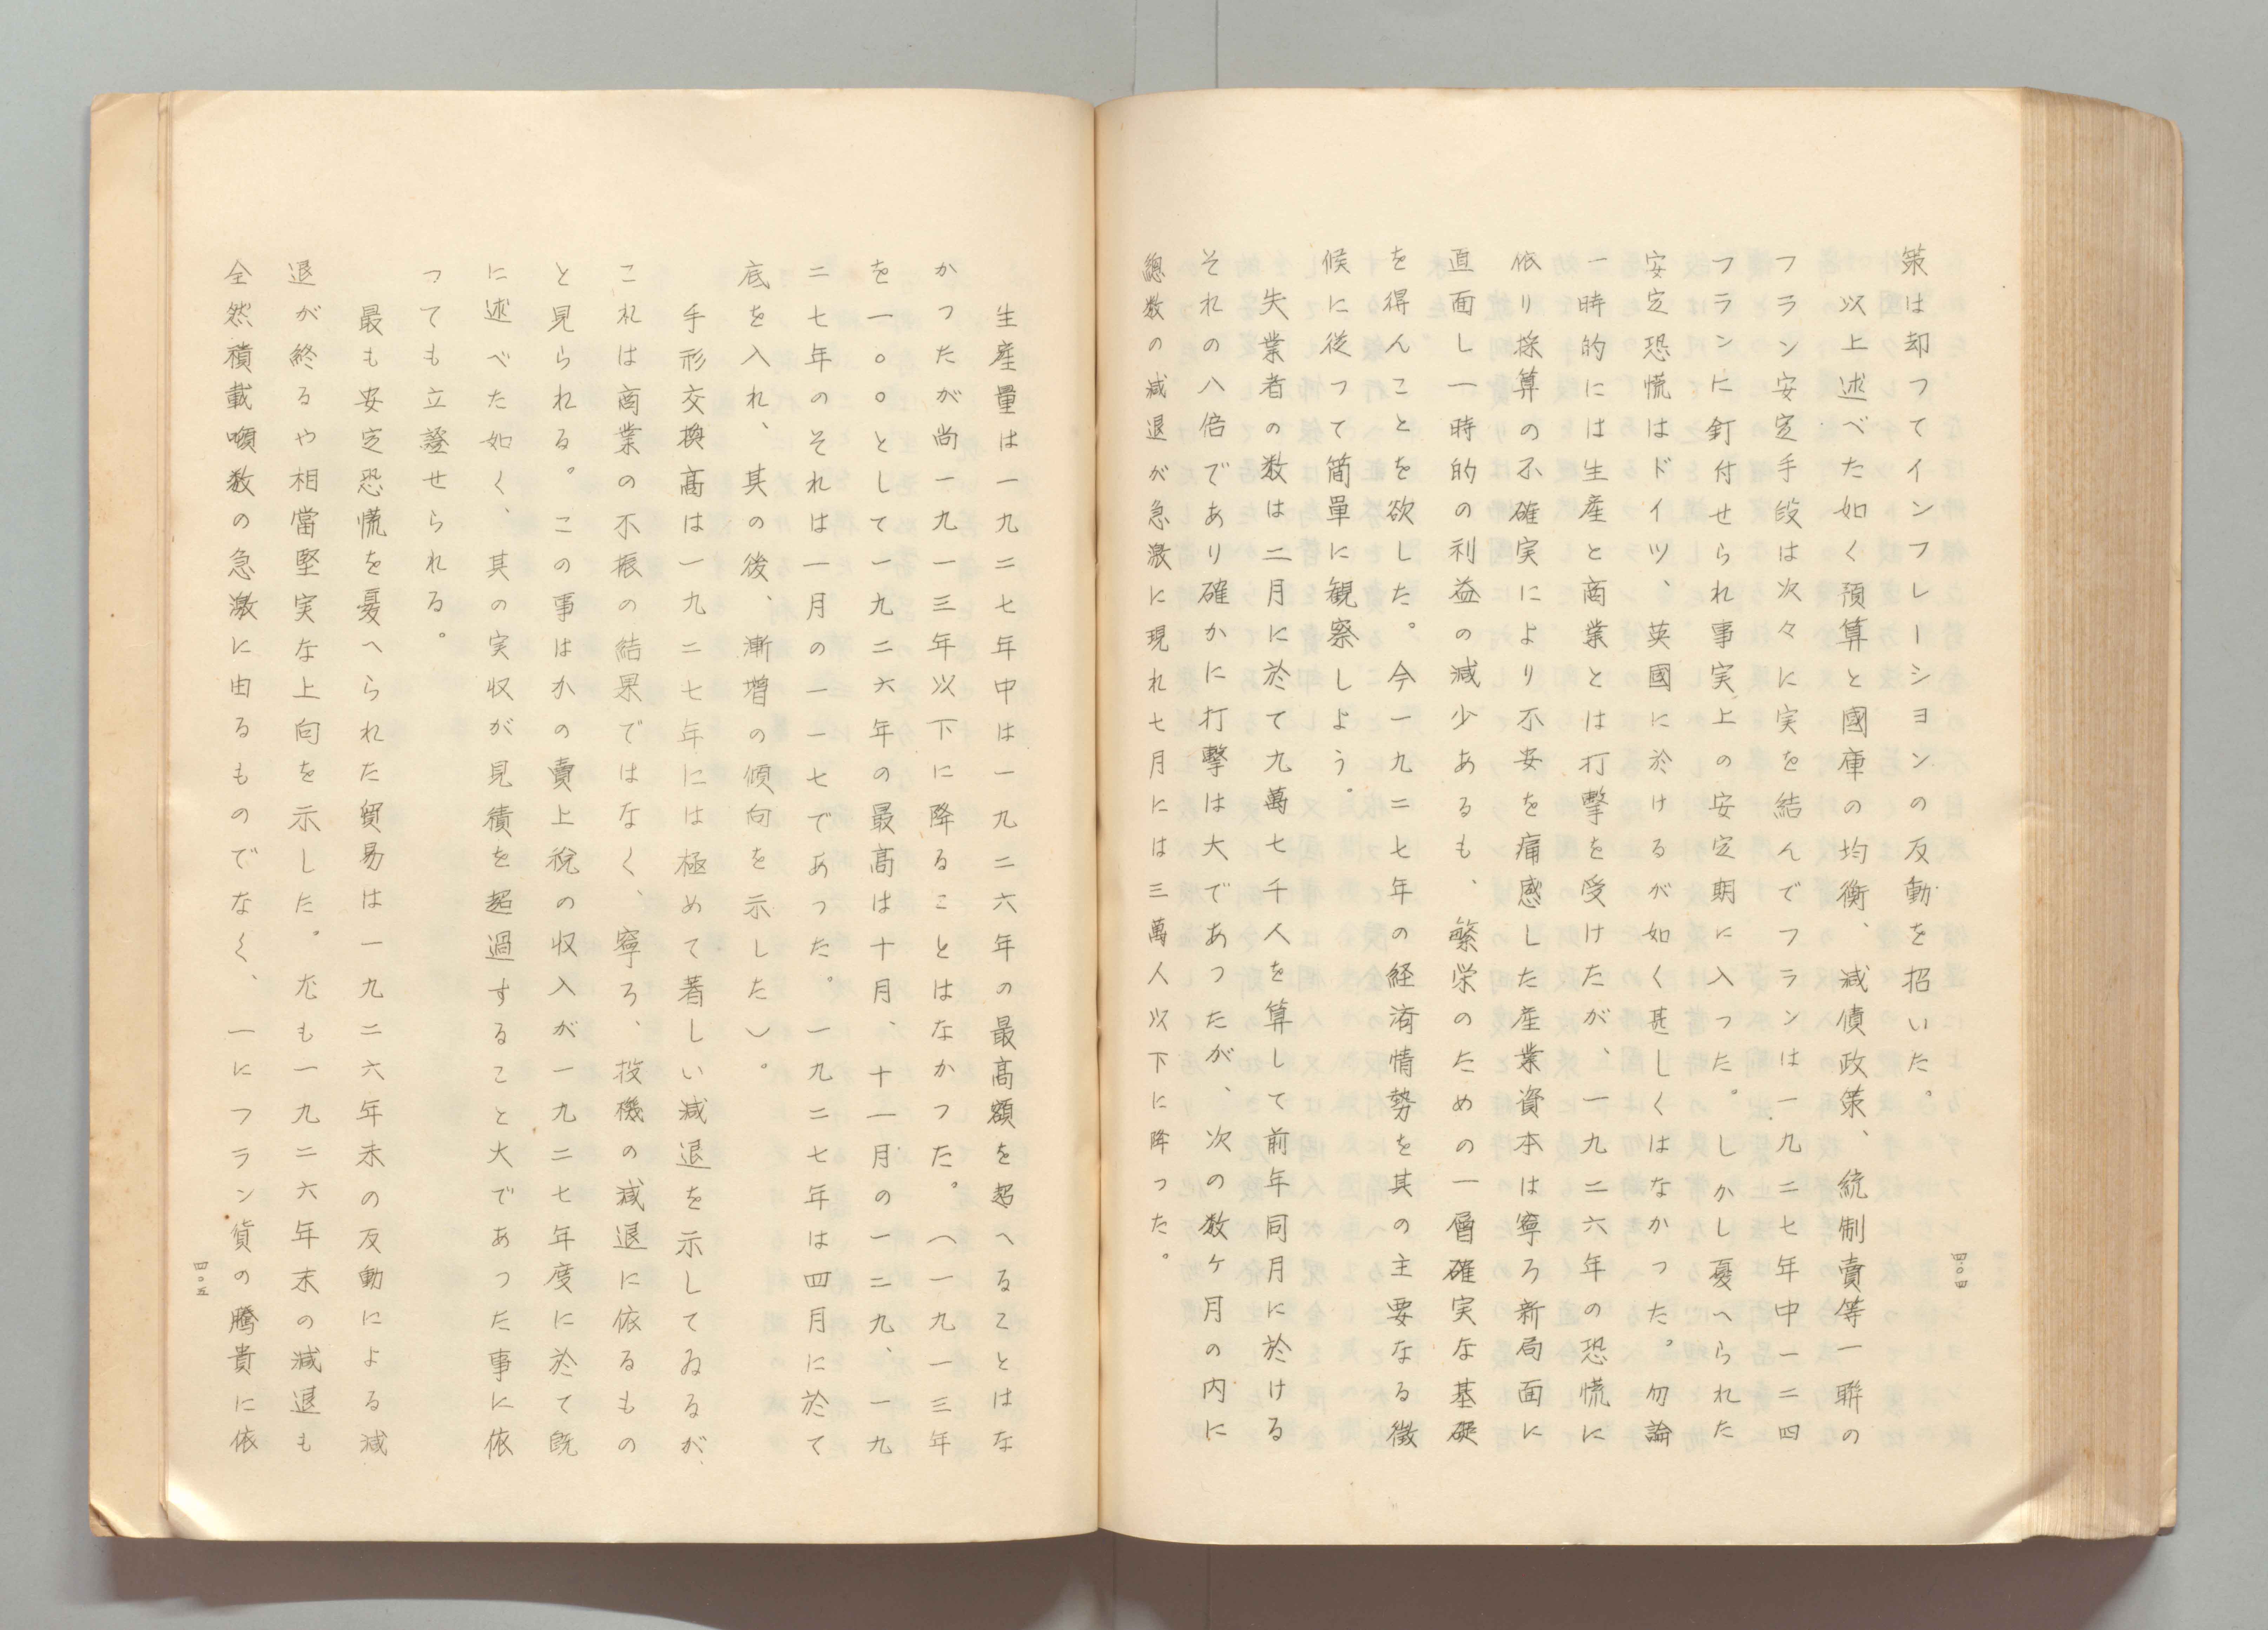 策は却つてインフレーシヨンの反動を招いた。
以上述べた如く預算と國庫の均衡、減債政策、統制賣等一聯の
フラン安定手段は次々に実を結んでフランは一九二七年中一二四
フランに釘付せられ事実上の安定期に入つた。しかし憂へられた
安定恐慌はドイツ、英國に於けるが如く甚しくはなかつた。勿論
一時的には生産と商業とは打撃を受けたが、一九二六年の恐慌に
依り採算の不確実により不安を痛感した産業資本は寧ろ新局面に
直面し一時的の利益の減少あるも、繁栄のための一層確実な基礎
を得んことを欲した。今一九二七年の経済情勢を其の主要なる徴
候に従つて簡單に観察しよう。
失業者の数は二月に於て九萬七千人を算して前年同月に於ける
それの八倍であり確かに打撃は大であつたが、次の数ケ月の内に
總数の減退が急激に現れ七月には三萬人以下に降つた。
四〇四
生産量は一九二七年中は一九二六年の最高額を超へることはな
かつたが尚一九一三年以下に降ることはなかつた。（一九一三年
を一〇〇として一九二六年の最高は十月、十一月の一二九、一九
二七年のそれは一月の一一七であつた。一九二七年は四月に於て
底を入れ、其の後、漸増の傾向を示した）。
手形交換高は一九二七年には極めて著しい減退を示してゐるが
これは商業の不振の結果ではなく、寧ろ、投機の減退に依るもの
と見られる。この事はかの賣上税の収入が一九二七年度に於て既
に述べた如く、其の実収が見積を超過すること大であつた事に依
つても立證せられる。
最も安定恐慌を憂へられた貿易は一九二六年末の反動による減
退が終るや相當堅実な上向を示した。尤も一九二六年末の減退も
全然積載噸数の急激に由るものでなく、一にフラン貨の騰貴に依
四〇五